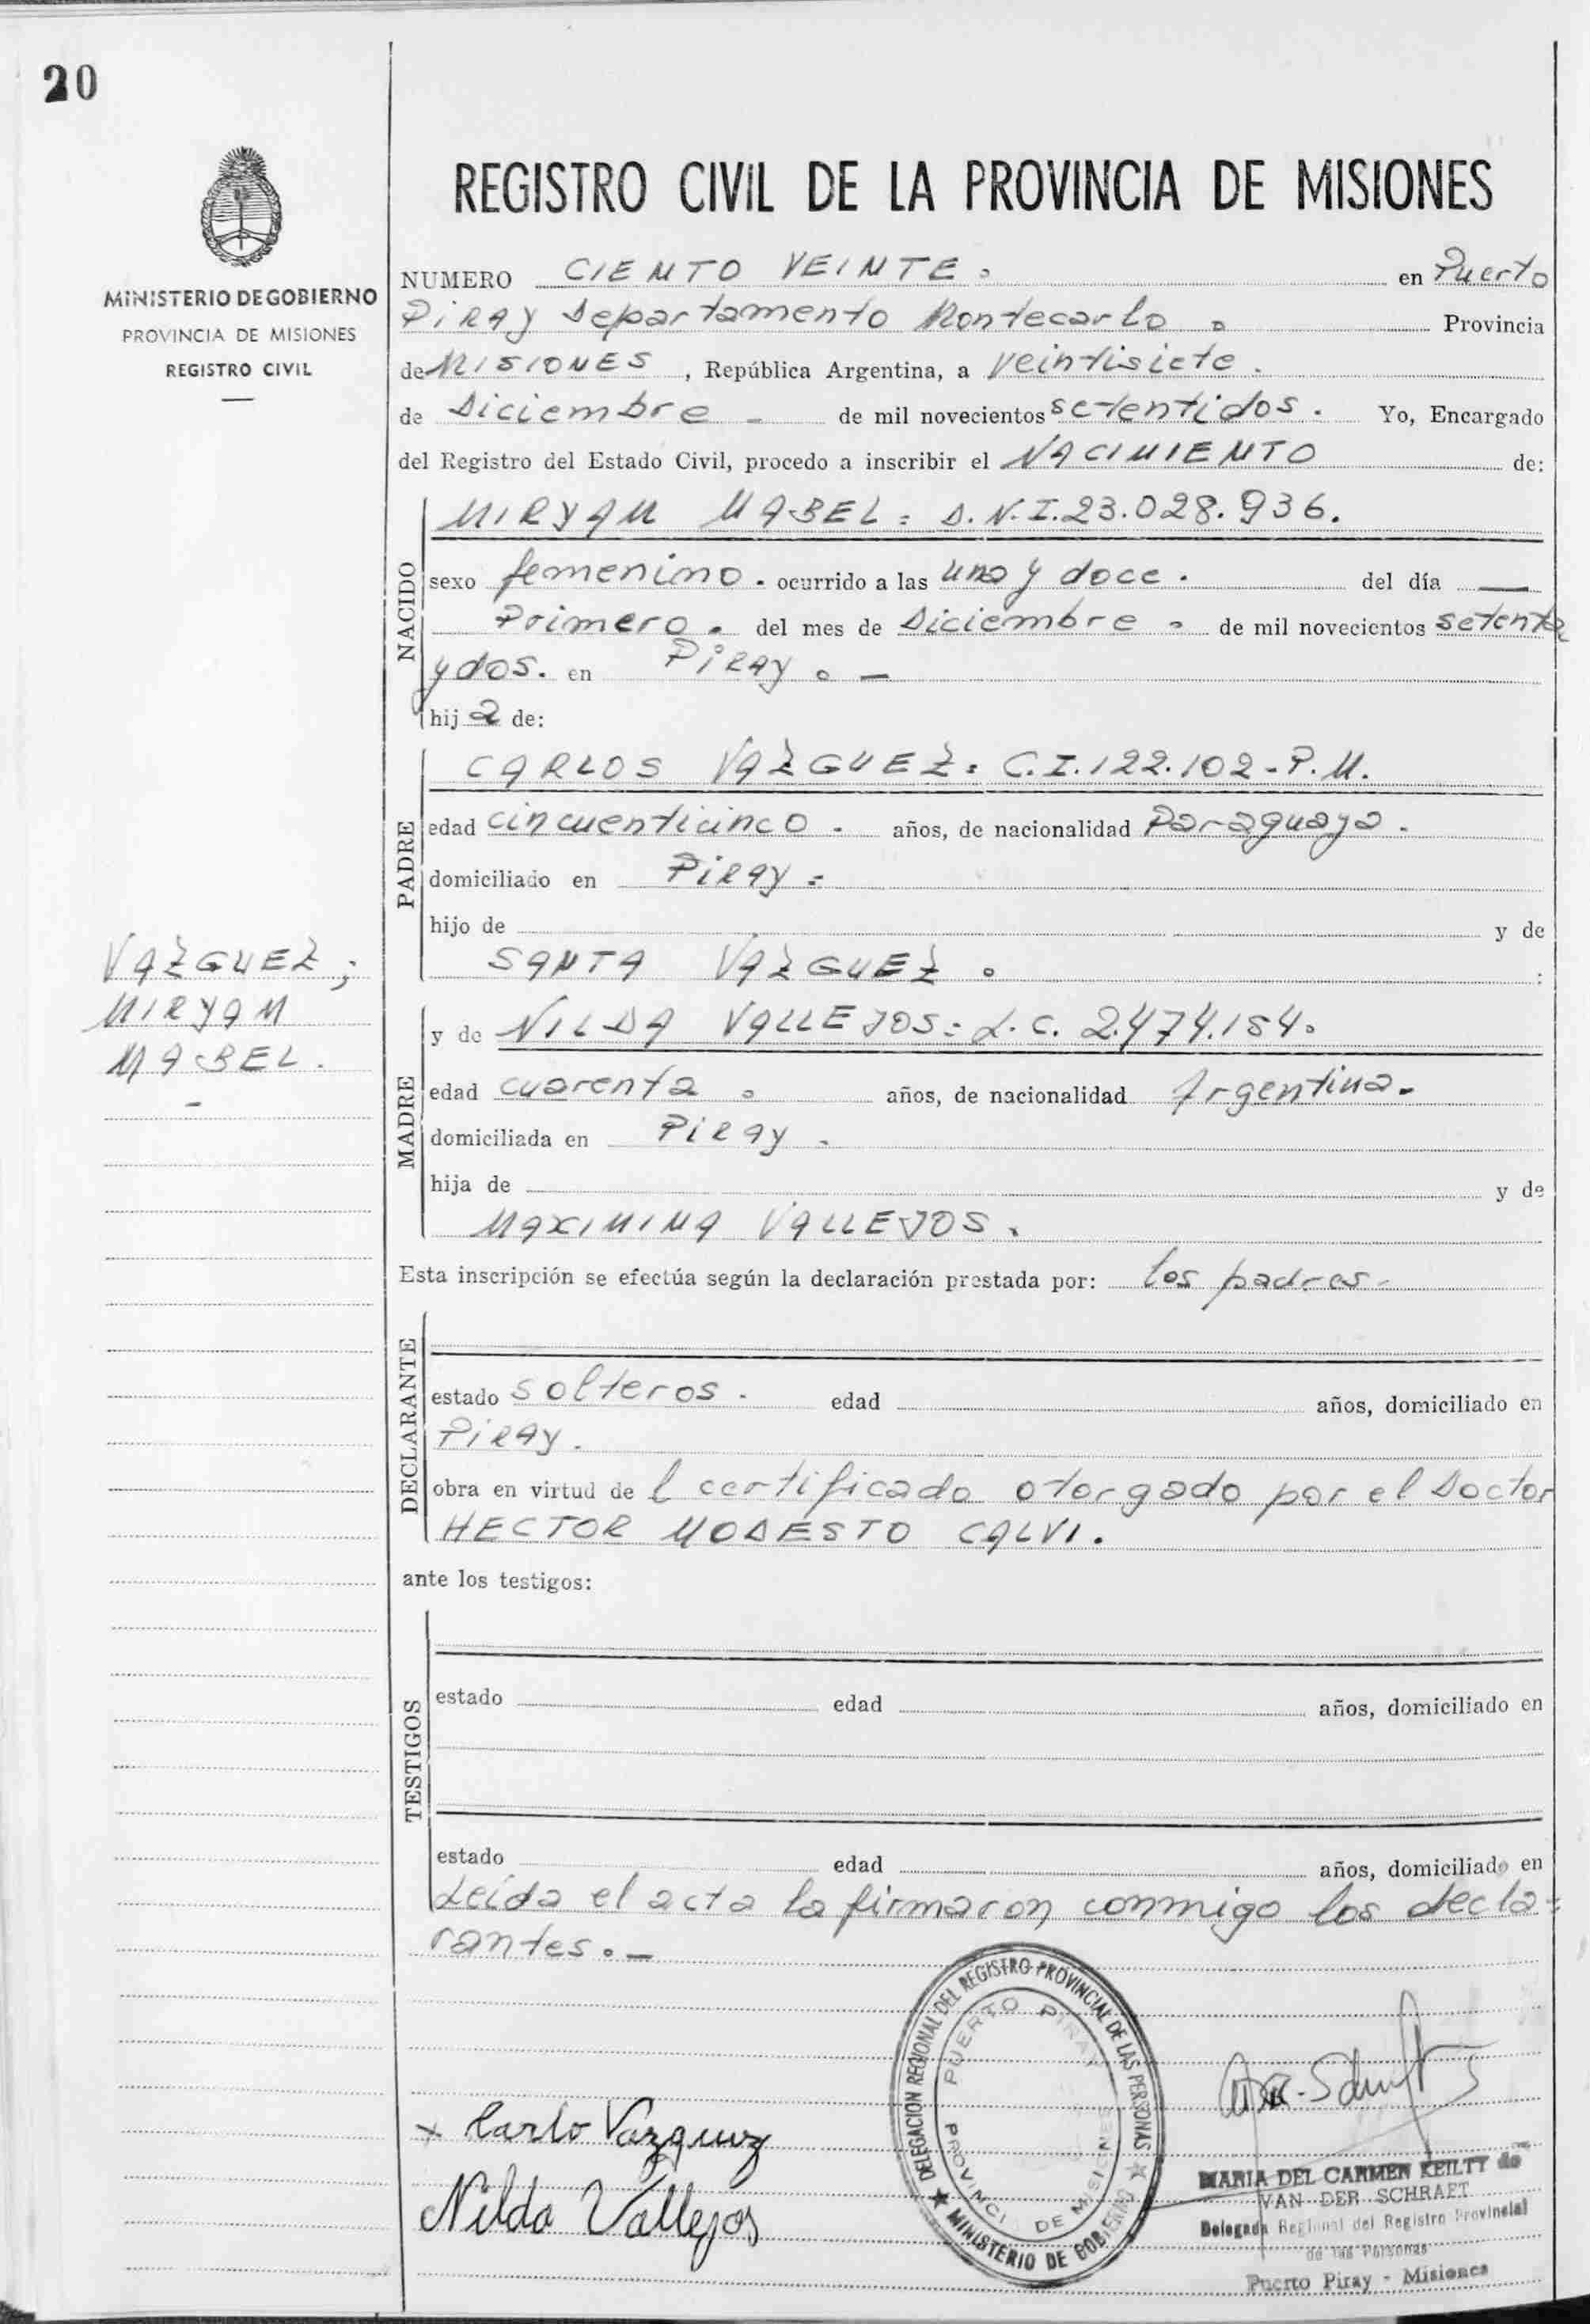 20
REGISTRO CIVIL DE LA PROVINCIA DE MISIONES
MINISTERIO DE GOBIERNO
PROVINCIA DE MISIONES
REGISTRO CIVIL
NUMERO CIENTO VEINTE. en Puerto
PiRAY Departamento Montecarlo. Provincia
de MISIONES, República Argentina, a veintisiete.
de Diciembre - de mil novecientos setentidos. Yo, Encargado
del Registro del Estado Civil, procedo a inscribir el NACIMIENTO de:
NACIDO
MIRYAM MABEL= D.N.I.23.028.936.
sexo femenino. ocurrido a las una y doce. del día —
Primero. del mes de Diciembre. de mil novecientos setenta
y dos. en PiRAY. —
hija de:
PADRE
CARLOS VAZGUEZ= C.I.122.102-P.M.
edad cincuenticinco. años, de nacionalidad Paraguaya.
domiciliado en PiRAY=
hijo de y de
SANTA VAZGUEZ. :
VAZGUEZ;
MIRYAM
MABEL.
-
MADRE
y de NILDA VALLEJOS= L.C. 2.474.154.
edad cuarenta. años, de nacionalidad Argentina.
domiciliada en PiRAY.
hija de y de
MAXIMINA VALLEJOS.
Esta inscripción se efectúa según la declaración prestada por: los padres.
DECLARANTE
estado solteros. edad años, domiciliado en
PiRAY.
obra en virtud de l certificado otorgado por el Doctor
HECTOR MODESTO CALVI.
ante los testigos:
TESTIGOS
estado edad años, domiciliado en
estado edad años, domiciliado en
Leída el acta la firmaron conmigo los decla=
rantes. —
DELEGACION REGIONAL DEL REGISTRO PROVINCIAL DE LAS PERSONAS
MINISTERIO DE GOBIERNO
PUERTO PIRAY
PROVINCI DE MISIONES
x Carlo Vazquez
Nilda Vallejos
MARIA DEL CARMEN KEILTY de
VAN DER SCHRAFT
Delegada Regional del Registro Provincial
de las Personas
Puerto Piray - Misiones